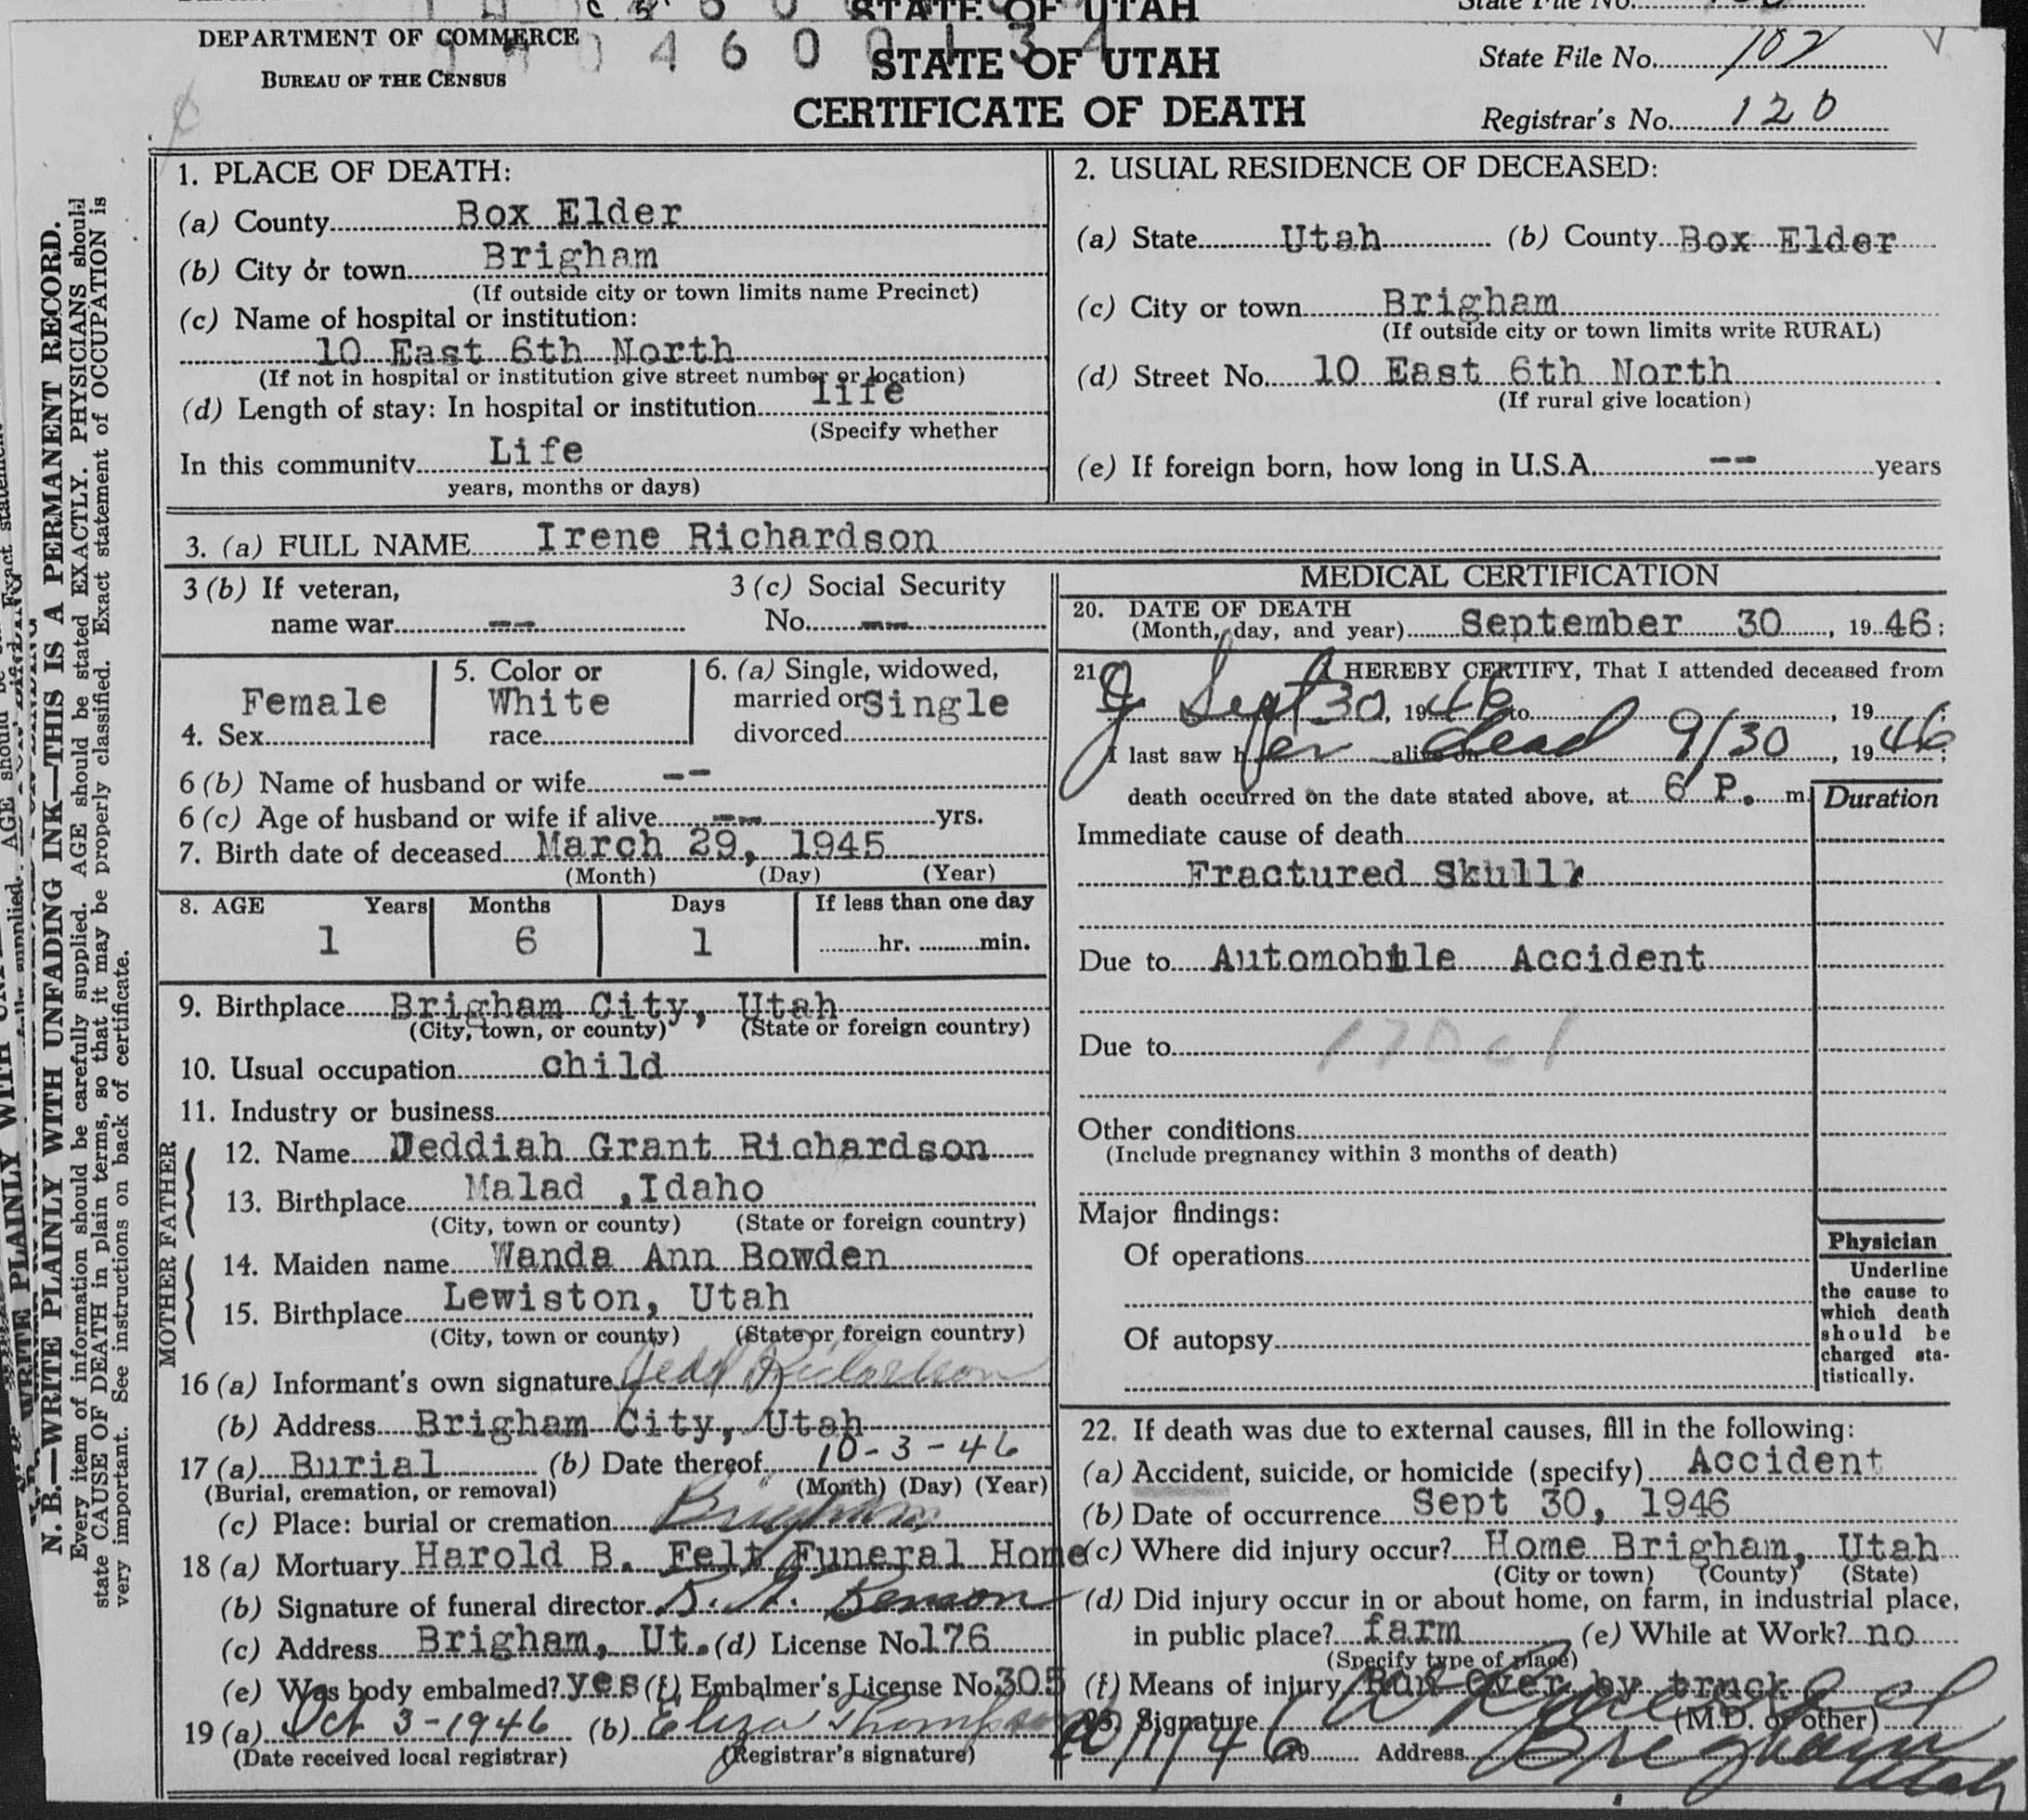 STATE OF UTAH
DEPARTMENT OF COMMERCE
BUREAU OF THE CENSUS
STATE OF UTAH
CERTIFICATE OF DEATH
State File No. 102
Registrar's No. 120
N. B.—WRITE PLAINLY WITH UNFADING INK—THIS IS A PERMANENT RECORD.
Every item of information should be carefully supplied. AGE should be stated EXACTLY. PHYSICIANS should
state CAUSE OF DEATH in plain terms, so that it may be properly classified. Exact statement of OCCUPATION is
very important. See instructions on back of certificate.
1. PLACE OF DEATH:
(a) County Box Elder
(b) City or town Brigham
(If outside city or town limits name Precinct)
(c) Name of hospital or institution:
10 East 6th North
(If not in hospital or institution give street number or location)
(d) Length of stay: In hospital or institution life
(Specify whether
In this community Life
years, months or days)
2. USUAL RESIDENCE OF DECEASED:
(a) State Utah (b) County Box Elder
(c) City or town Brigham
(If outside city or town limits write RURAL)
(d) Street No. 10 East 6th North
(If rural give location)
(e) If foreign born, how long in U.S.A. -- years
3. (a) FULL NAME Irene Richardson
3 (b) If veteran, 3 (c) Social Security
name war -- No. --
4. Sex Female
5. Color or race White
6. (a) Single, widowed, married or divorced Single
6 (b) Name of husband or wife --
6 (c) Age of husband or wife if alive -- yrs.
7. Birth date of deceased March 29, 1945
(Month) (Day) (Year)
8. AGE Years Months Days If less than one day
1 6 1 hr. min.
9. Birthplace Brigham City, Utah
(City, town, or county) (State or foreign country)
10. Usual occupation child
11. Industry or business
FATHER
12. Name Jeddiah Grant Richardson
13. Birthplace Malad ,Idaho
(City, town or county) (State or foreign country)
MOTHER
14. Maiden name Wanda Ann Bowden
15. Birthplace Lewiston, Utah
(City, town or county) (State or foreign country)
16 (a) Informant's own signature Jedd Richardson
(b) Address Brigham City, Utah
17 (a) Burial (b) Date thereof 10-3-46
(Burial, cremation, or removal) (Month) (Day) (Year)
(c) Place: burial or cremation Brigham
18 (a) Mortuary Harold B. Felt Funeral Home
(b) Signature of funeral director Benson
(c) Address Brigham, Ut. (d) License No. 176
(e) Was body embalmed? yes (f) Embalmer's License No. 305
19 (a) Oct 3-1946 (b) Eliza Thompson
(Date received local registrar) (Registrar's signature)
MEDICAL CERTIFICATION
20. DATE OF DEATH
(Month, day, and year) September 30, 1946;
21. I HEREBY CERTIFY, That I attended deceased from
Sept 30, 1946 to , 19 ;
I last saw her alive on dead 9/30, 1946;
death occurred on the date stated above, at 6 P. m.
Duration
Immediate cause of death
Fractured Skull
Due to Automobile Accident
Due to
Other conditions
(Include pregnancy within 3 months of death)
Major findings:
Of operations
Of autopsy
Physician
Underline
the cause to
which death
should be
charged sta-
tistically.
22. If death was due to external causes, fill in the following:
(a) Accident, suicide, or homicide (specify) Accident
(b) Date of occurrence Sept 30, 1946
(c) Where did injury occur? Home Brigham, Utah
(City or town) (County) (State)
(d) Did injury occur in or about home, on farm, in industrial place,
in public place? farm (e) While at Work? no
(Specify type of place)
(f) Means of injury Run over by truck
23. Signature (M.D. or other)
10/1/46 19 Address Brigham Utah